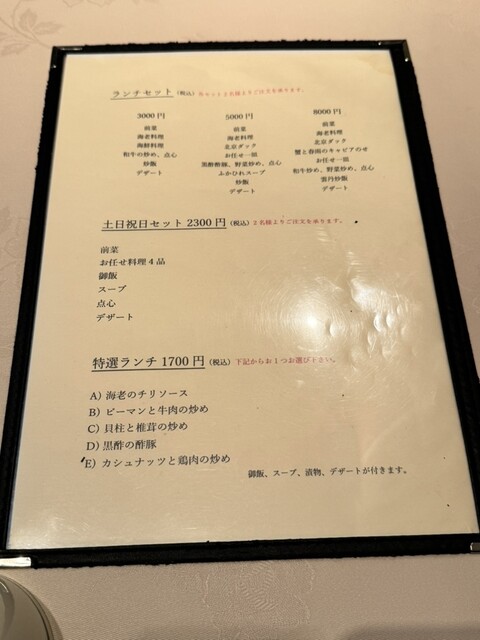 ランチセット（税込）各セット2名様よりご注文を承ります。
3000円
前菜
海老料理
海鮮料理
和牛の炒め、点心
炒飯
デザート
5000円
前菜
海老料理
北京ダック
お任せ一品
黒酢酢豚、野菜炒め、点心
ふかひれスープ
炒飯
デザート
8000円
前菜
海老料理
北京ダック
蟹と春雨のキャビアのせ
お任せ一品
和牛炒め、野菜炒め、点心
雲丹炒飯
デザート
土日祝日セット 2300円（税込）2名様よりご注文を承ります。
前菜
お任せ料理4品
御飯
スープ
点心
デザート
特選ランチ 1700円（税込）下記からお1つお選び下さい。
A) 海老のチリソース
B) ピーマンと牛肉の炒め
C) 貝柱と椎茸の炒め
D) 黒酢の酢豚
E) カシュナッツと鶏肉の炒め
御飯、スープ、漬物、デザートが付きます。